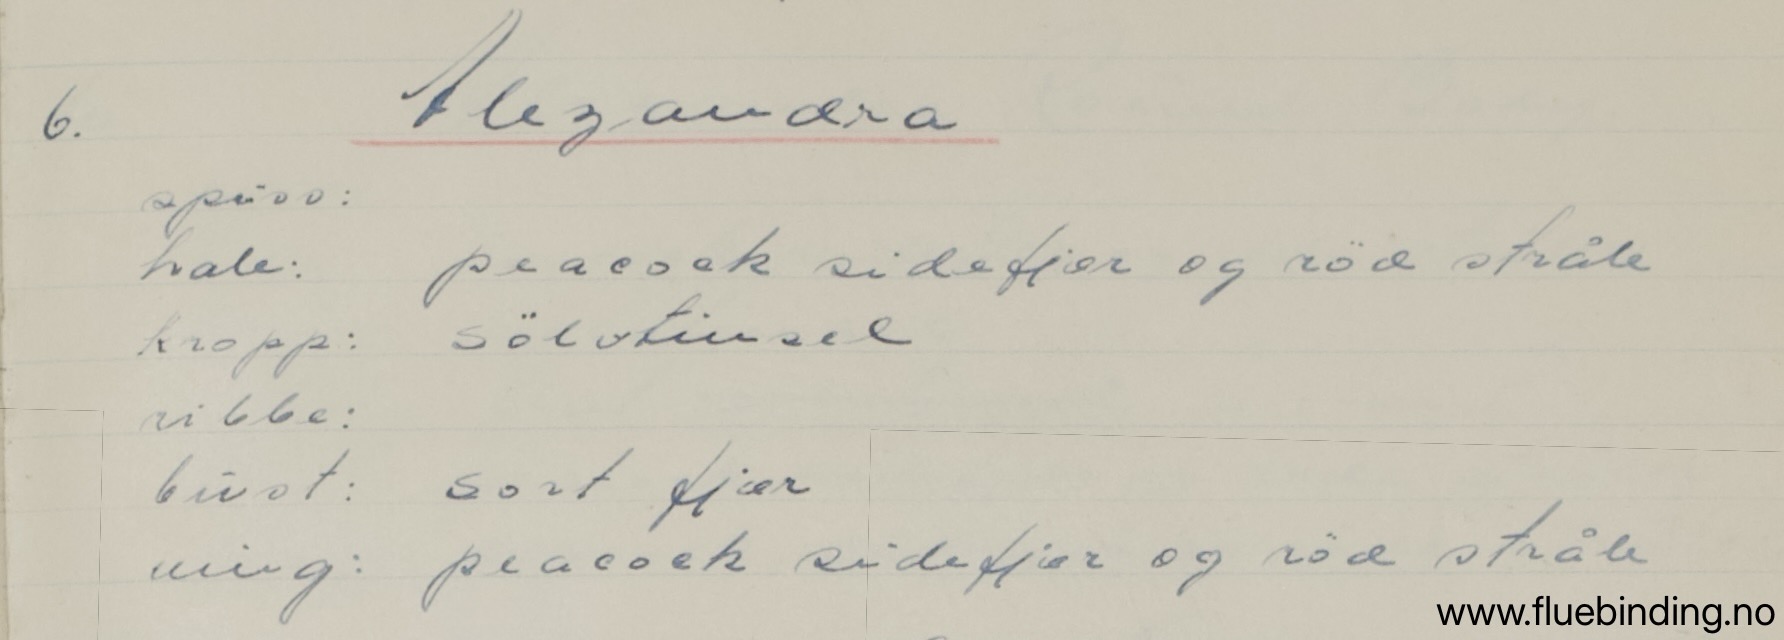 6. Alexandra
spiss:
hale: peacock sidefjær og röd stråle
kropp: sölvtinsel
ribbe:
bust: sort fjær
ving: peacock sidefjær og röd stråle
www.fluebinding.no